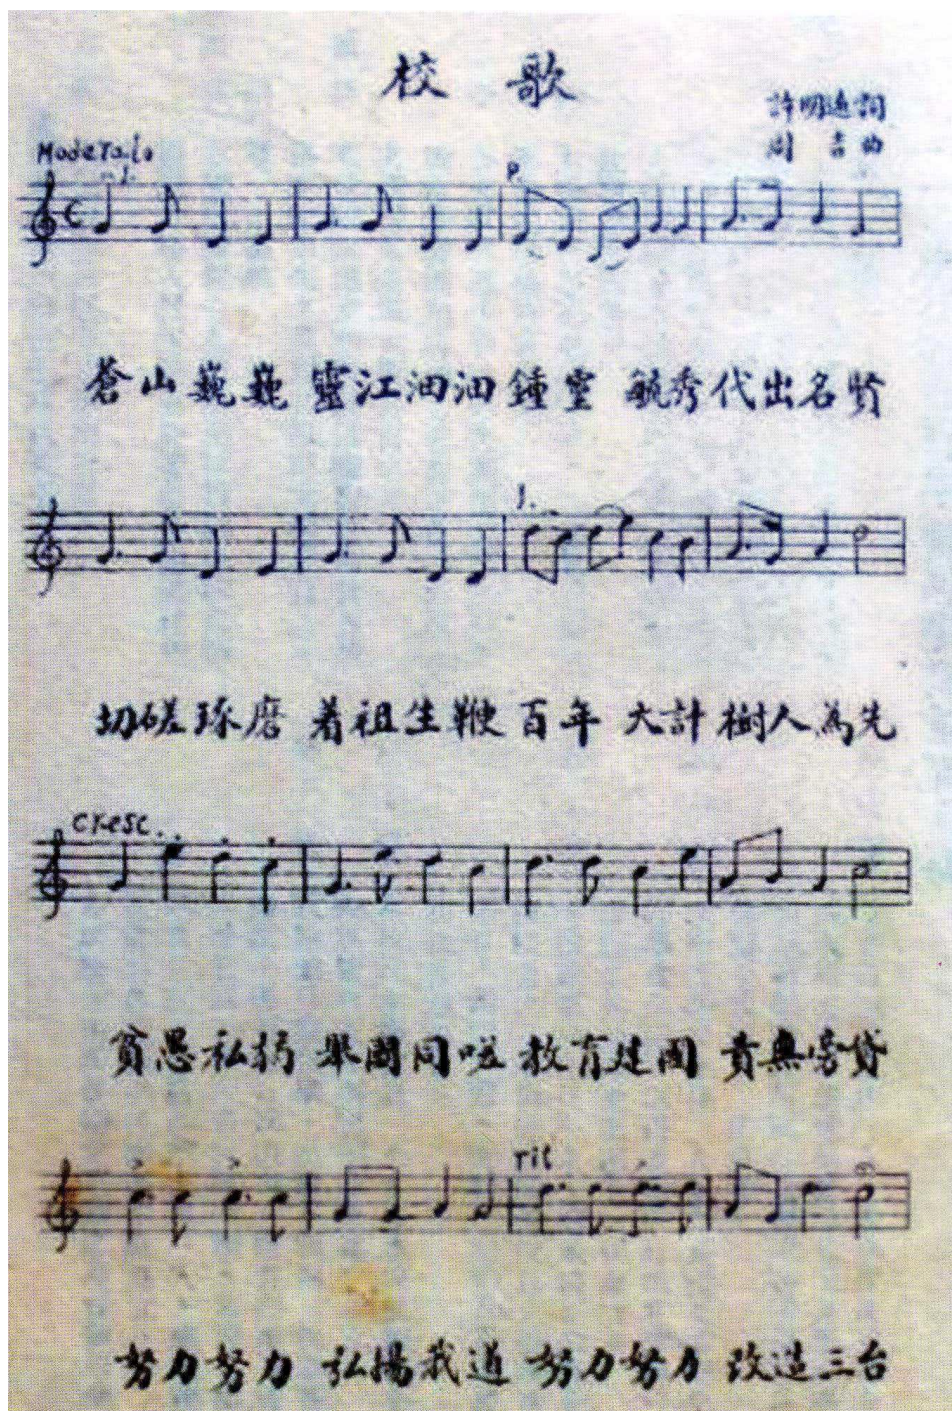 校 歌
許明遠詞
周 吉 曲
Moderato
f.
P.
蒼山巍巍 靈江汩汩 鍾靈 毓秀代出名賢
f.
切磋琢磨 着祖生鞭 百年 大計 樹人為先
cresc.
貧愚私弱 舉國同嗟 教育建國 責無旁貸
rit
努力努力 弘揚我道 努力努力 改造三台